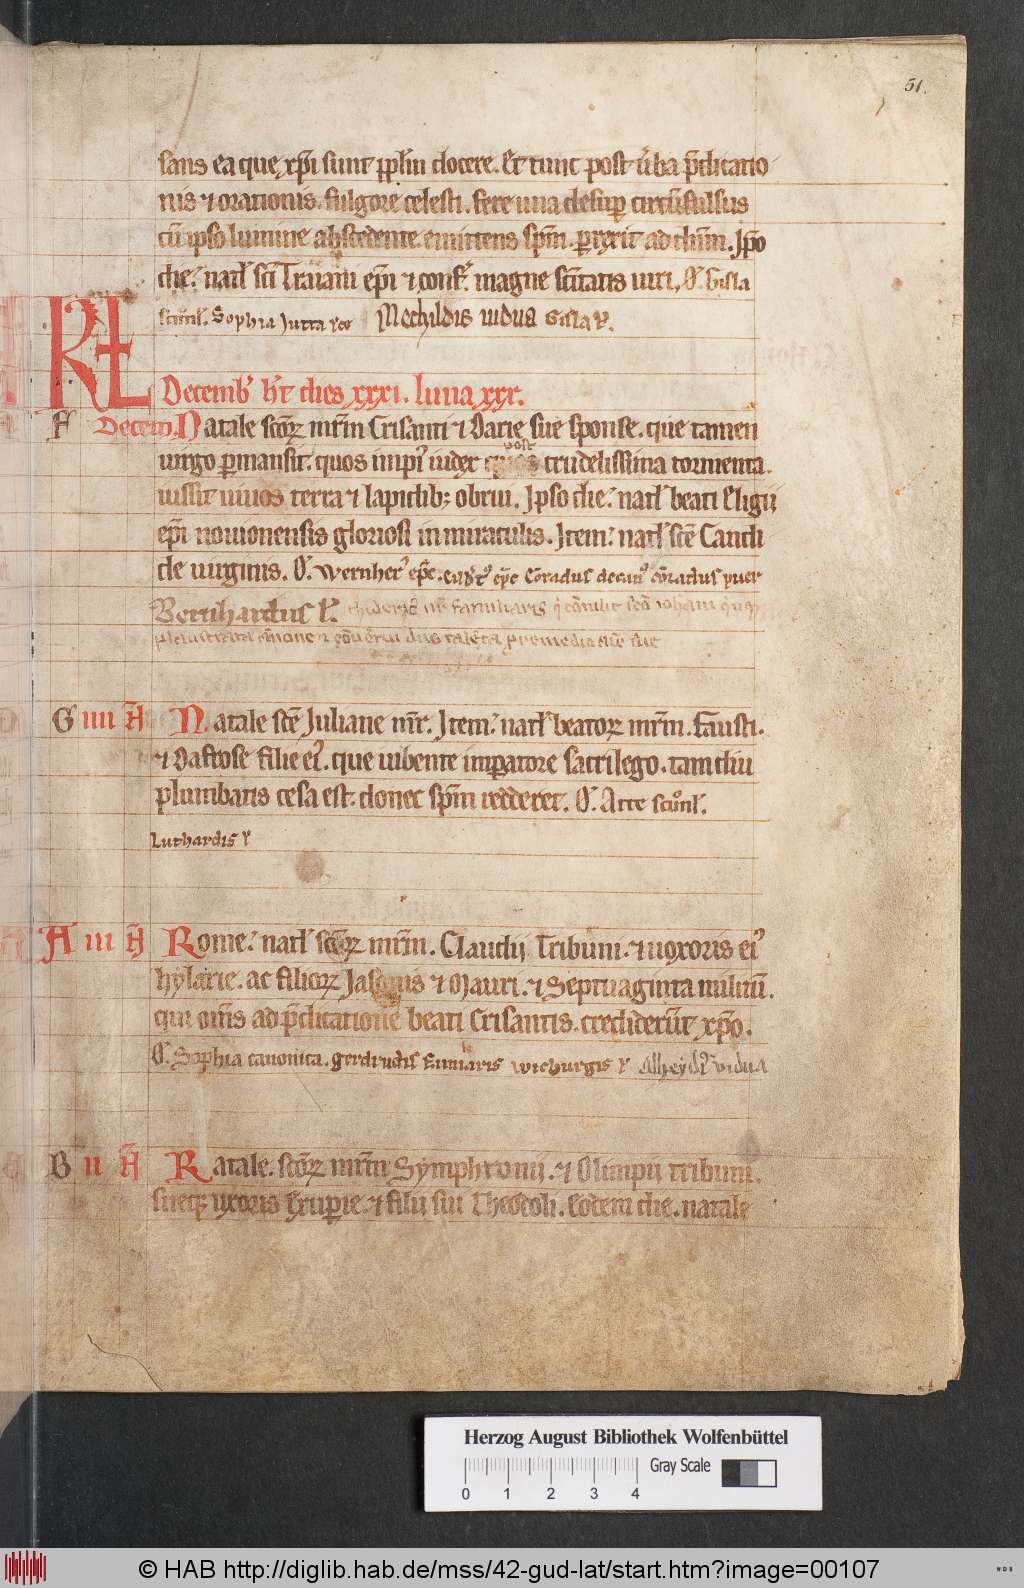 51.
sans ea que xp̄i sunt ppl̄m docere. Et tunc post u̅ba p̄dicatio
nis ⁊ orationis. fulgore celesti. fere una desup̱ circu̅fulsus
cu̅ ipso lumine abscedente emittens sp̄m. p̱rexit ad dn̄m. Ip̄o
die. natl̄ sc̄i Traiani ep̄i ⁊ conf. magne sc̄itatis uiri. O. Gisla
Sophia Jutta Mechildis uidua Gisla
KL
Decemb̄ h̄t dies xxxi. luna xxx.
F Decem. Natale sc̄oꝝ mr̄m Crisanti ⁊ Darie sue sponse. que tamen
uirgo p̱mansit. quos impi' iudex post crudelissima tormenta.
iussit uiuos terra ⁊ lapidib; obrui. Ipso die. natl̄ beati Eligii
ep̄i nouionensis gloriosi in miraculis. Item. natl̄ sc̄e Candi
de uirginis. O. Wernher' ep̄c. ep̄c Conradus decan' co̅radus puer
Bernhardus familiaris
G iiii N̄ Natale sc̄e Juliane mr̄. Item. natl̄ beatoꝝ mr̄m. Fausti.
⁊ Dafrose filie ei'. que iubente imp̱atore sacrilego. tam diu
plumbatis cesa est. donec sp̄m redderet. O. Atte
Luthardis
A iii N̄ Rome. natl̄ sc̄oꝝ mr̄m. Claudii Tribuni. ⁊ uxoris ei'
hylarie. ac filioꝝ Jasonis ⁊ Mauri. ⁊ Septuaginta militu̅.
qui om̄s ad p̄dicatione̅ beati Crisantis. crediderūt xp̄o.
O. Sophia canonica. Gerdrudis wichurgis Alheyd' vidua
B ii N̄ Natale. sc̄oꝝ mr̄m Symphronii. ⁊ Olimpii tribuni.
sueq; uxoris Exup̱ie. ⁊ filii sui Theodoli. Eodem die. natale
Herzog August Bibliothek Wolfenbüttel
Gray Scale
0 1 2 3 4
© HAB http://diglib.hab.de/mss/42-gud-lat/start.htm?image=00107